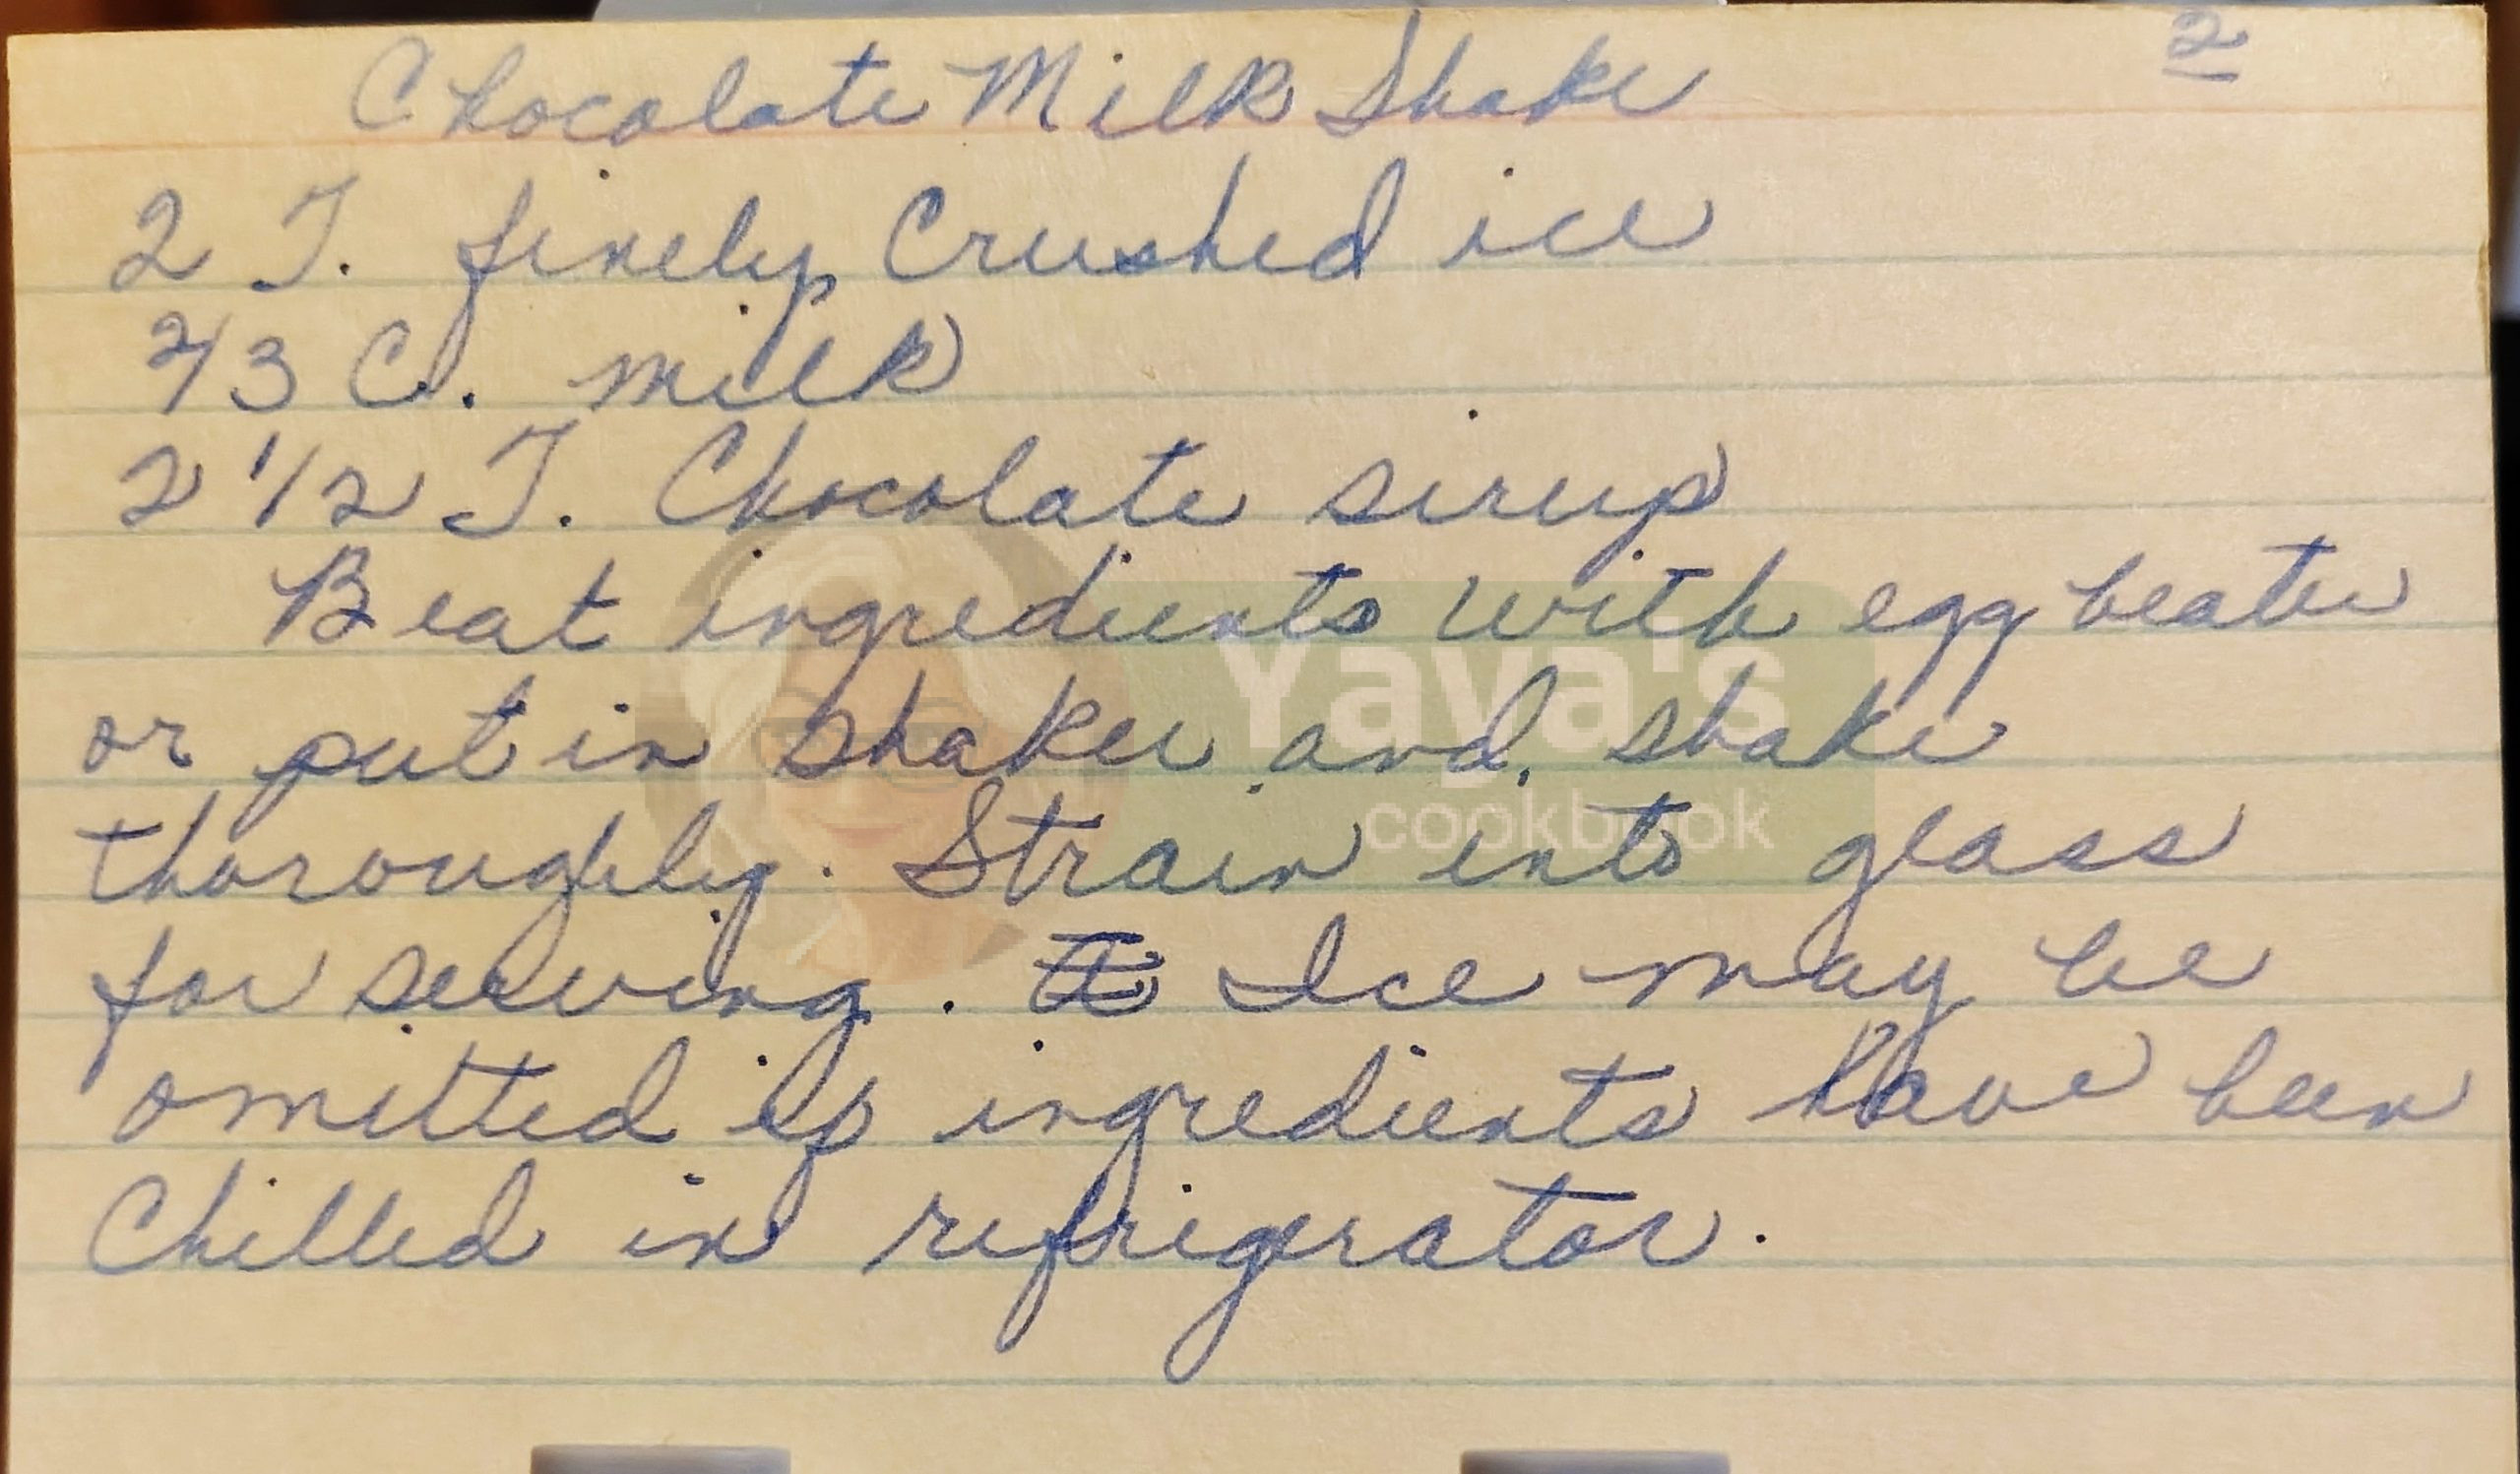 Chocolate Milk Shake 2
2 T. finely Crushed ice
2/3 C. milk
2 1/2 T. Chocolate sirup
Beat ingredients with egg beater
or put in shaker and shake
thoroughly. Strain into glass
for serving. Ice may be
omitted if ingredients have been
Chilled in refrigerator.
Yaya's
cookbook